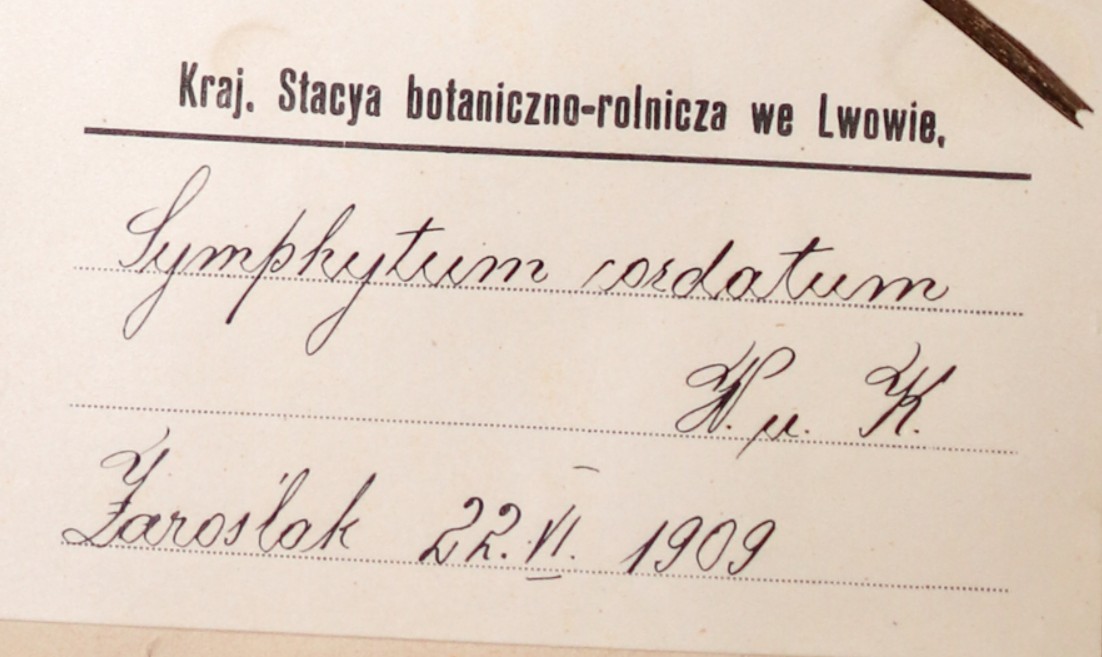 Kraj. Stacya botaniczno-rolnicza we Lwowie.
Symphytum cordatum
W. u. K.
Zaroślak 22. VI. 1909